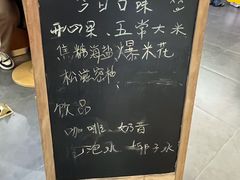 今日口味
开心果、五常大米
焦糖海盐爆米花
松滋
饮品
咖啡 奶昔
气泡水 椰子水